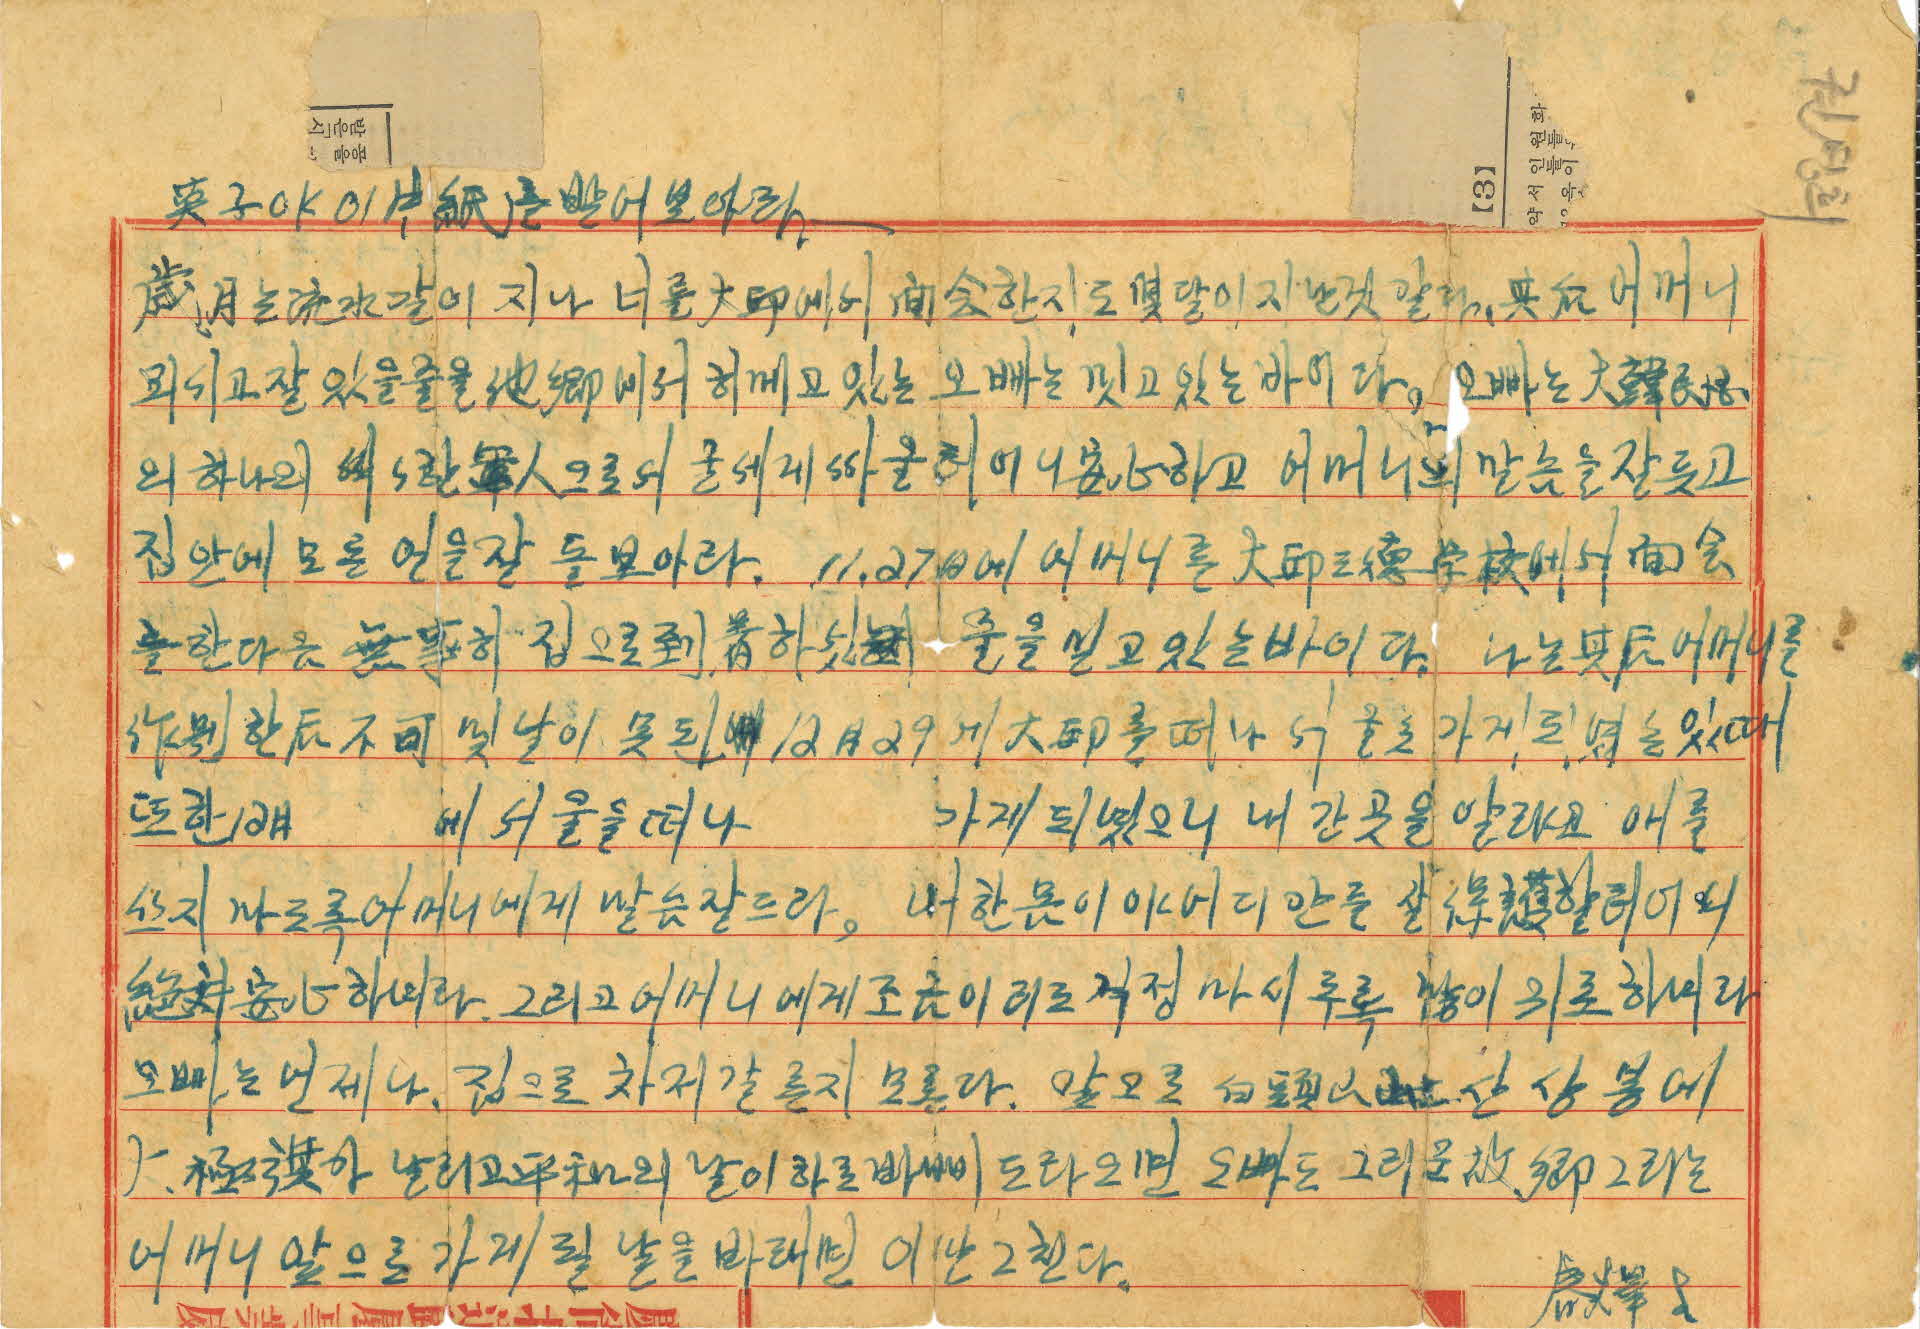 英子야 이 片紙를 받어보아라.
歲月는 流水갈이 지나 너를 大邱에서 面会한지도 몇달이 지난것 갈다. 其后 어머니
뫼시고 잘 있을줄을 他鄕에서 허메고 있는 오빠는 밋고 있는바이다. 오빠는 大韓民国
의 하나의 씩씩한 軍人으로서 굴세게 싸울터이니 安心하고 어머니의 말슴을 잘 듯고
집안에 모든 일을 잘 돌보아라. 11.27日에 어머니를 大邱 三德 学校에서 面会
를 한다음 無事히 집으로 到着하싯 줄을 밑고 있는바이다. 나는 其后 어머니를
作別한 后 不可 몇날이 못된 12月29 에 大邱를 떠나 서울로 가게 되 였는
또한 12月 에 서울을 떠나 가게 되였으니 내 간곳을 알라고 애를
쓰지 마도록 어머니에게 말슴 잘드라. 내 한몸이야 어디 간들 잘 保護할터이
絶対 安心하여라. 그리고 어머니에게 조금이러도 걱정 마시루록 많이 위로하여라
오빠는 언제나 집으로 차저갈른지 모른다. 앞으로 白頭山 산상봉에
太極旗가 날리고 平和의 날이 하로바삐 도라오면 오빠도 그리운 故鄕 그리는
어머니 앞으로 가게 될 날을 바래면 이만 그친다.
啓燁
천영희
【3】